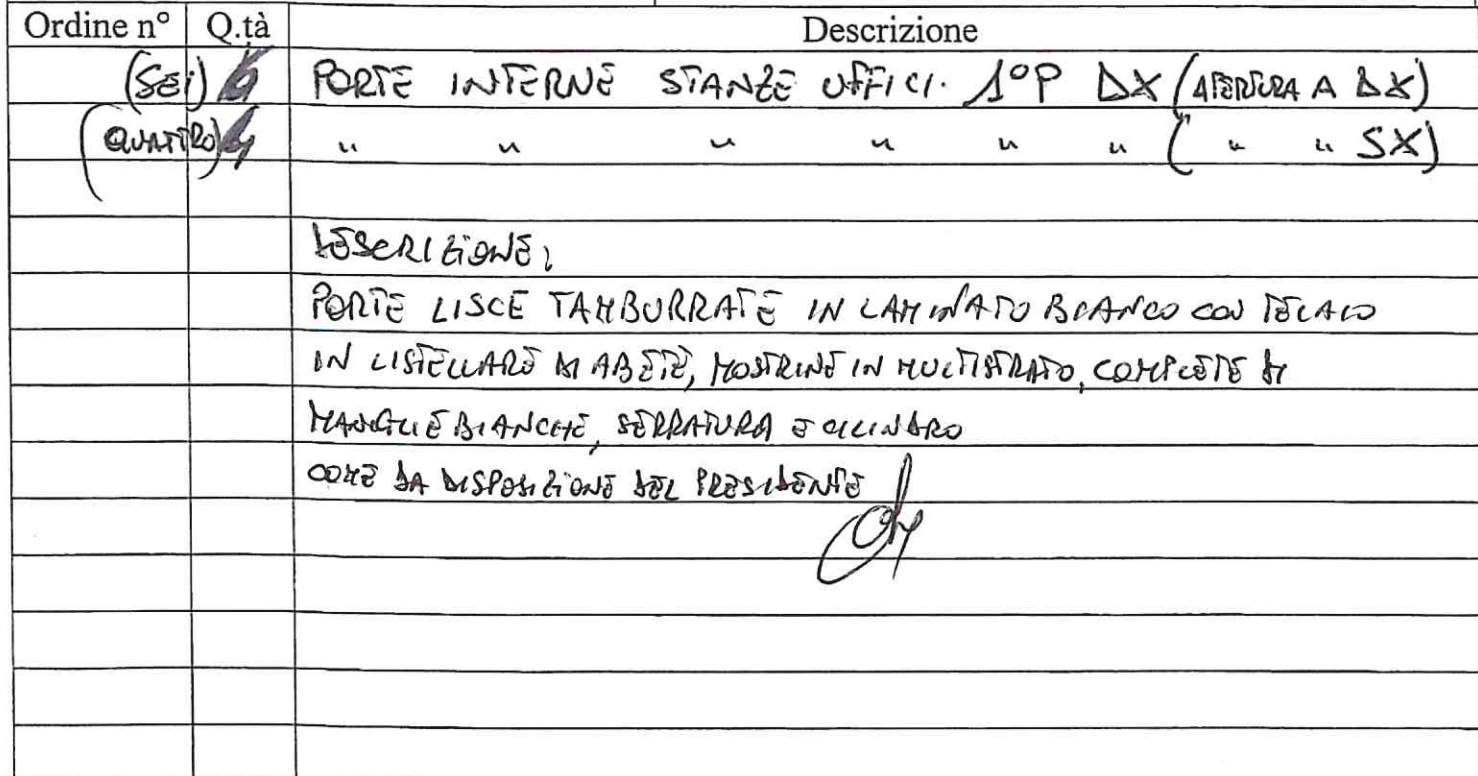 Ordine n° Q.tà Descrizione
(SEI) 6 PORTE INTERNE STANZE UFFICI. 1°P DX (APERTURA A DX)
(QUATTRO) 4 " " " " " " ( " " SX)
DESCRIZIONE:
PORTE LISCE TAMBURRATE IN LAMINATO BIANCO CON TELAIO
IN LISTELLARE DI ABETE, MOSTRINE IN MULTISTRATO, COMPLETE DI
MANIGLIE BIANCHE, SERRATURA E CILINDRO
COME DA DISPOSIZIONE DEL PRESIDENTE